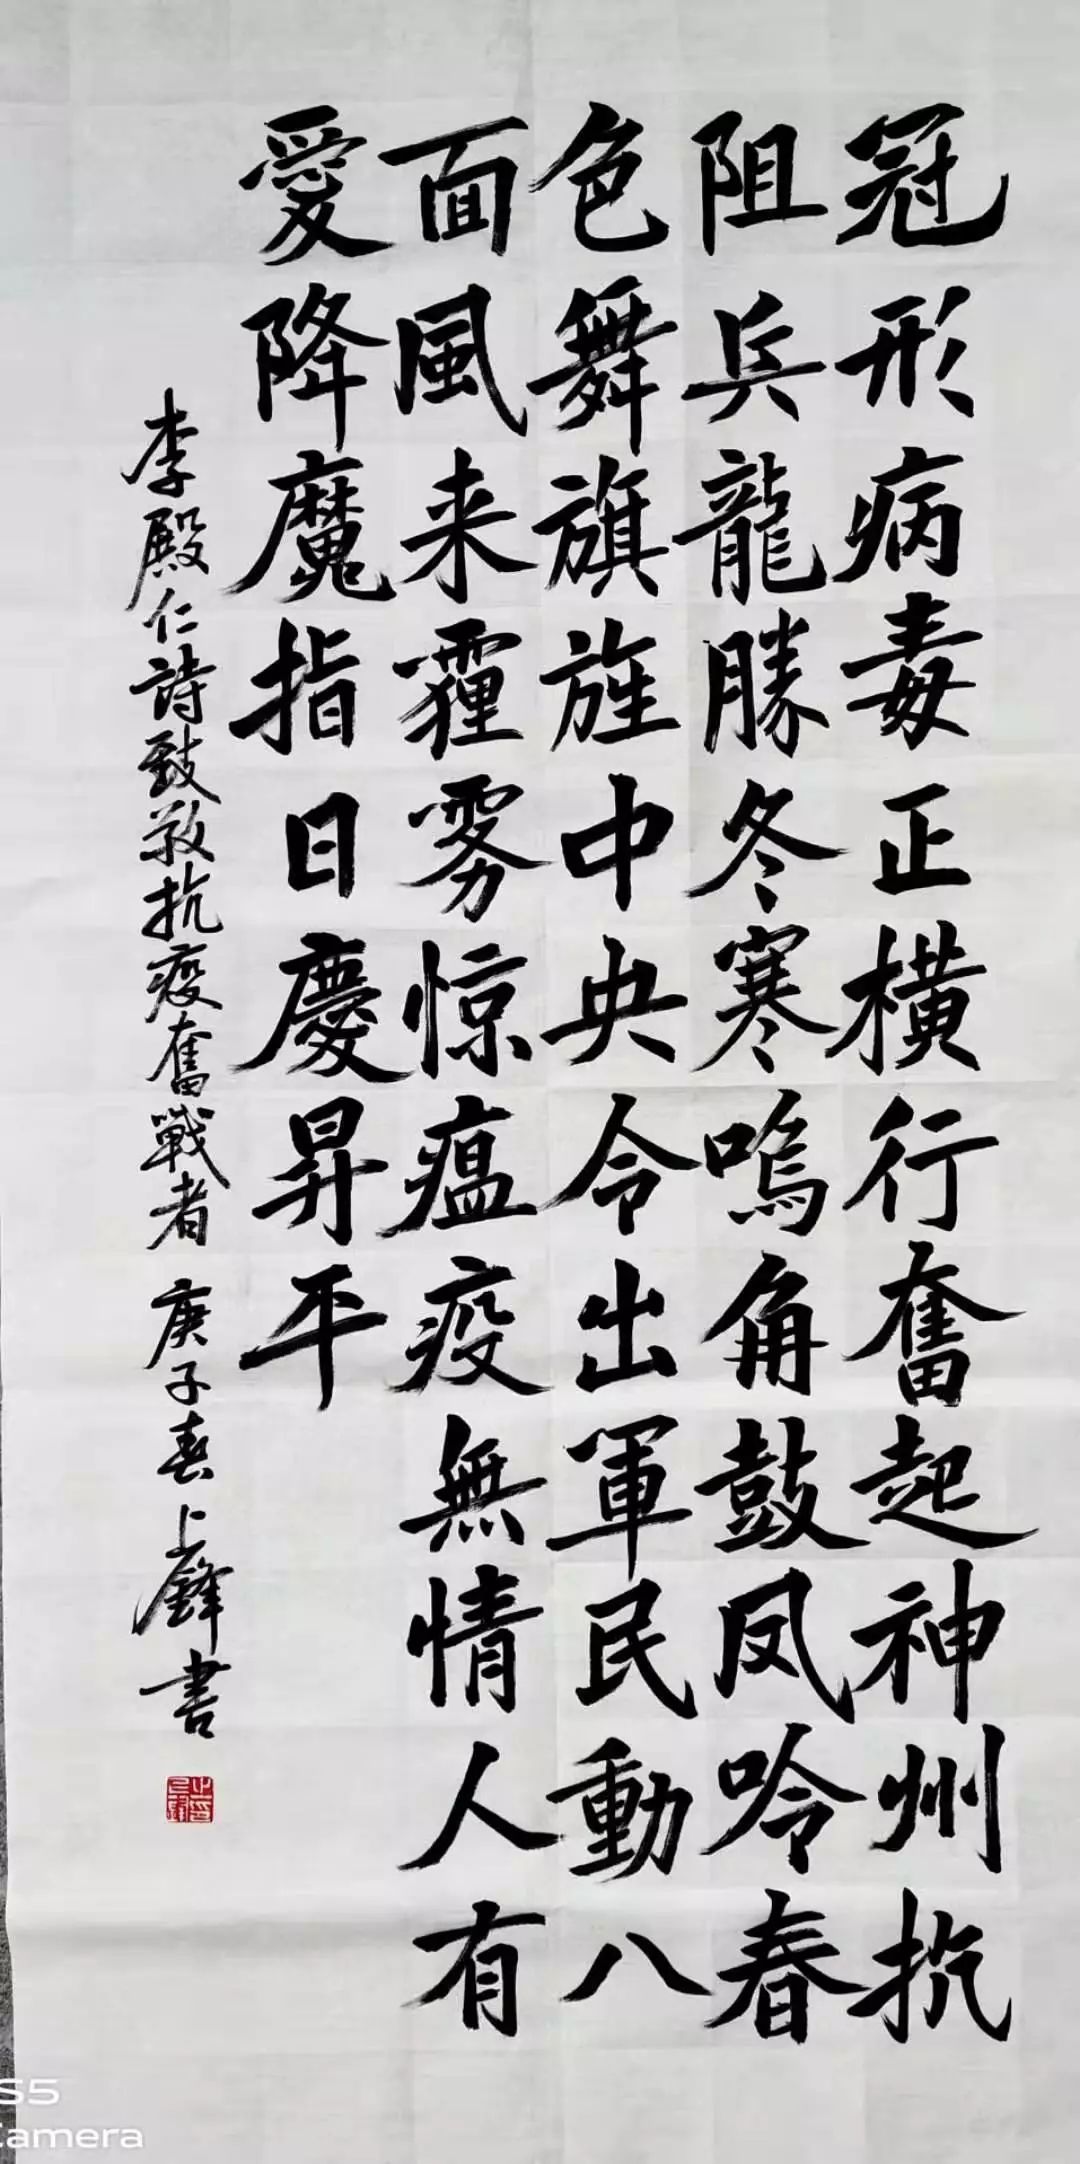 冠形病毒正横行奮起神州抗
阻兵龍勝冬寒鳴角鼓凤吟春
色舞旗旌中央令出軍民動八
面風来霾雾惊瘟疫無情人有
愛降魔指日慶昇平
李殿仁詩致敬抗疫奮戰者 庚子春上鋒書
S5
Camera